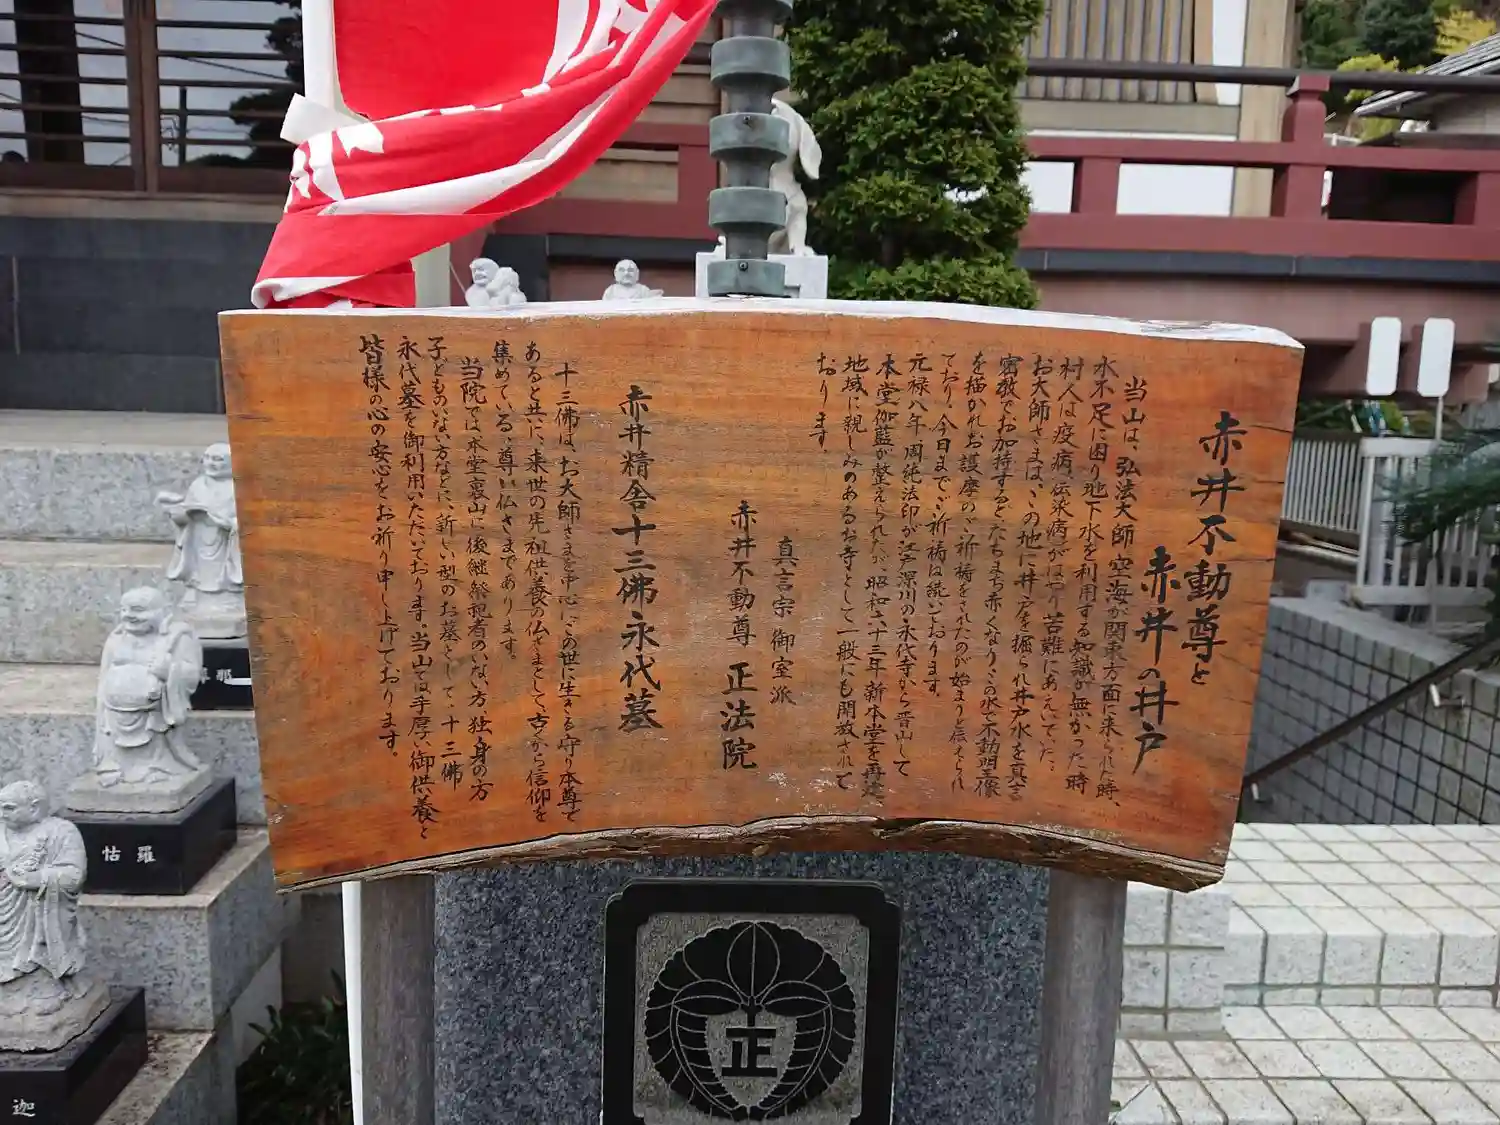 赤井不動尊と
赤井の井戸
当山は、弘法大師 空海が関東方面に来られた時、
水不足に困り地下水を利用する知識が無かった時
村人は疫病、伝染病がはやり苦難にあえいでた。
お大師さまは、この地に井戸を掘られ井戸水を真言
密教でお加持するとたちまち赤くなり、この水で不動明王像
を描かれお護摩のご祈祷をされたのが始まりと伝えられ
ており、今日までご祈祷は続いております。
元禄八年 周純法印が江戸深川の永代寺から晋山して
本堂伽藍が整えられたが、昭和五十三年新本堂を再建、
地域に親しみのあるお寺として一般にも開放されて
おります。
真言宗 御室派
赤井不動尊 正法院
赤井精舎十三佛永代墓
十三佛は、お大師さまを中心にこの世に生きる守り本尊で
あると共に、来世の先祖供養の仏さまとして、古から信仰を
集めている、尊い仏さまであります。
当院では本堂裏山に後継祭祀者のいない方、独身の方
子どものいない方などに、新しい型のお墓として、十三佛
永代墓を御利用いただいております。当山では手厚い御供養と
皆様の心の安心をお祈り申し上げております。
正
怙羅
迦